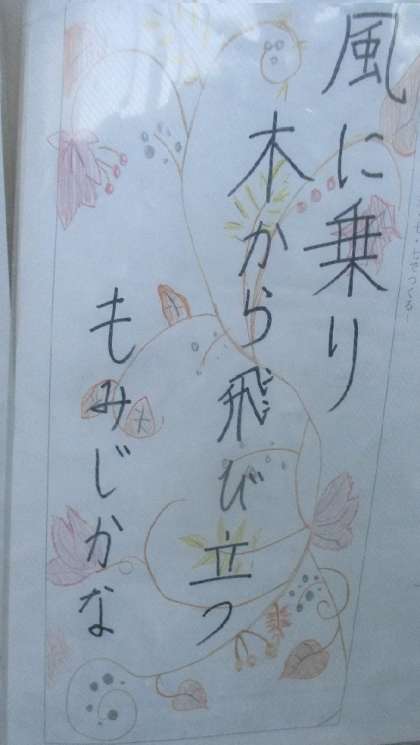 風に乗り
木から飛び立つ
もみじかな